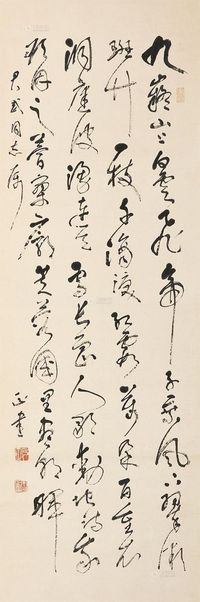 九嶷山上白雲飛帝子乘風下翠微
斑竹一枝千滴淚紅霞萬朵百重衣
洞庭波涌連天雪長島人歌動地詩我
欲因之夢寥廓芙蓉國里盡朝暉
同志属